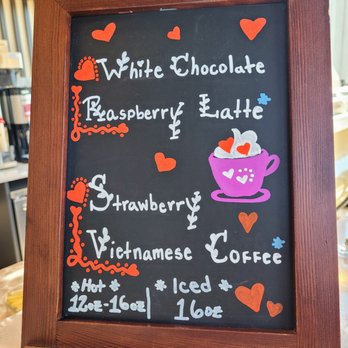 White Chocolate
Raspberry Latte*
Strawberry
Vietnamese Coffee*
*Hot* * Iced *
12oz-16oz | 16oz